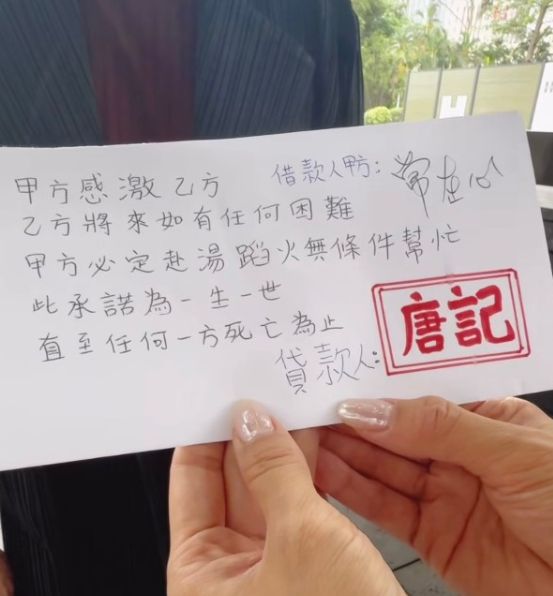 甲方感激乙方
借款人甲方: 常在心
乙方將來如有任何困難
甲方必定赴湯蹈火無條件幫忙
此承諾為一生一世
直至任何一方死亡為止
貸款人: 唐記